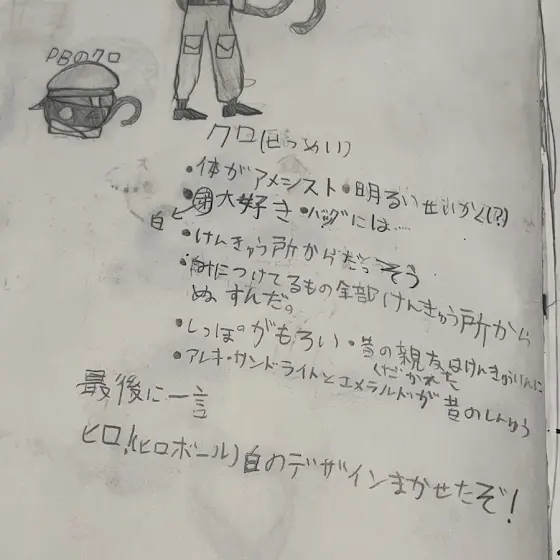 PBのクロ
クロ(せつめい)
・体がアメシスト・明るいせいかく(?)
・白と团大好き・バッグには……
・けんきゅう所からだっそう
・身につけてるもの全部けんきゅう所から
ぬすんだ。
・しっぽがもろい・昔の親友はけんきゅういんに
くだかれた
・アレキ・サンドライトとエメラルドが昔のしんゆう
最後に一言
ヒロ!(ヒロボール)白のデザインまかせたぞ!